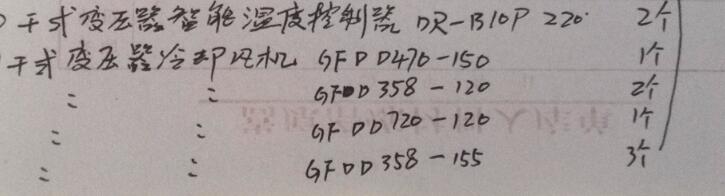 干式变压器智能温度控制器 DR-B10P 220 2个
干式变压器冷却风机 GFDD470-150 1个
〃 〃 GFDD358-120 2个
〃 〃 GFDD720-120 1个
〃 〃 GFDD358-155 3个